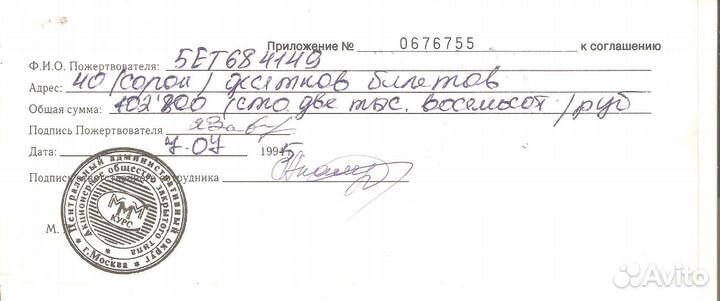 Приложение № 0676755 к соглашению
Ф.И.О. Пожертвователя: 5ЕТ684149
Адрес: 40 /сорок/ десятков билетов
Общая сумма: 102'800 /сто две тыс. восемьсот /руб
Подпись Пожертвователя
Дата: 7.07 1994
Подпись ответственного сотрудника
М.
Центральный административный округ
г.Москва
Акционерное общество закрытого типа
МММ
КУРС
Avito